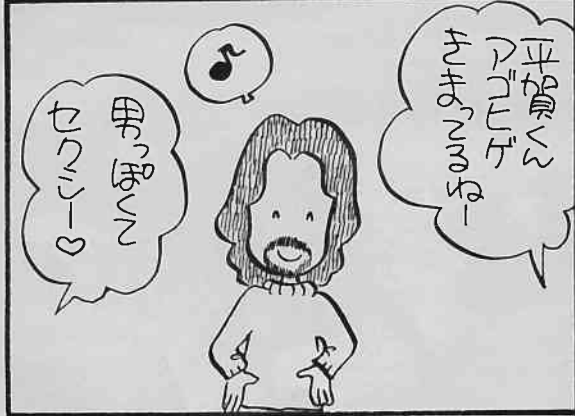 平賀くん
アゴヒゲ
きまってるねー
男っぽくて
セクシー♡